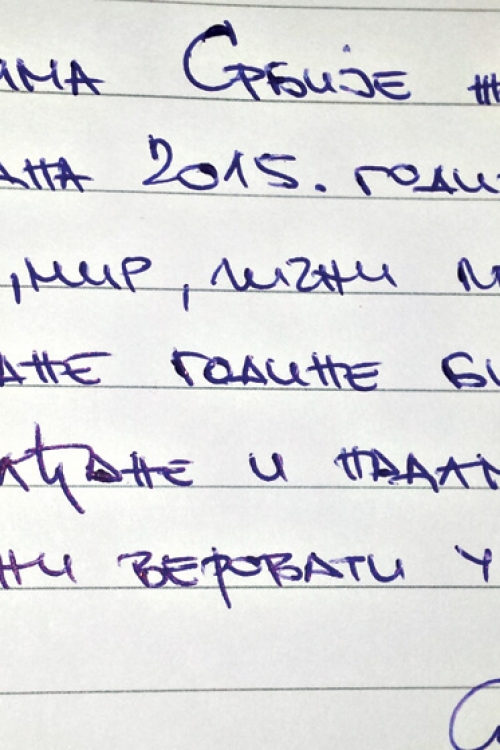 има Србије
ана 2015. годи
, мир, лични
ане године би
ађане и надам
ни веровати у